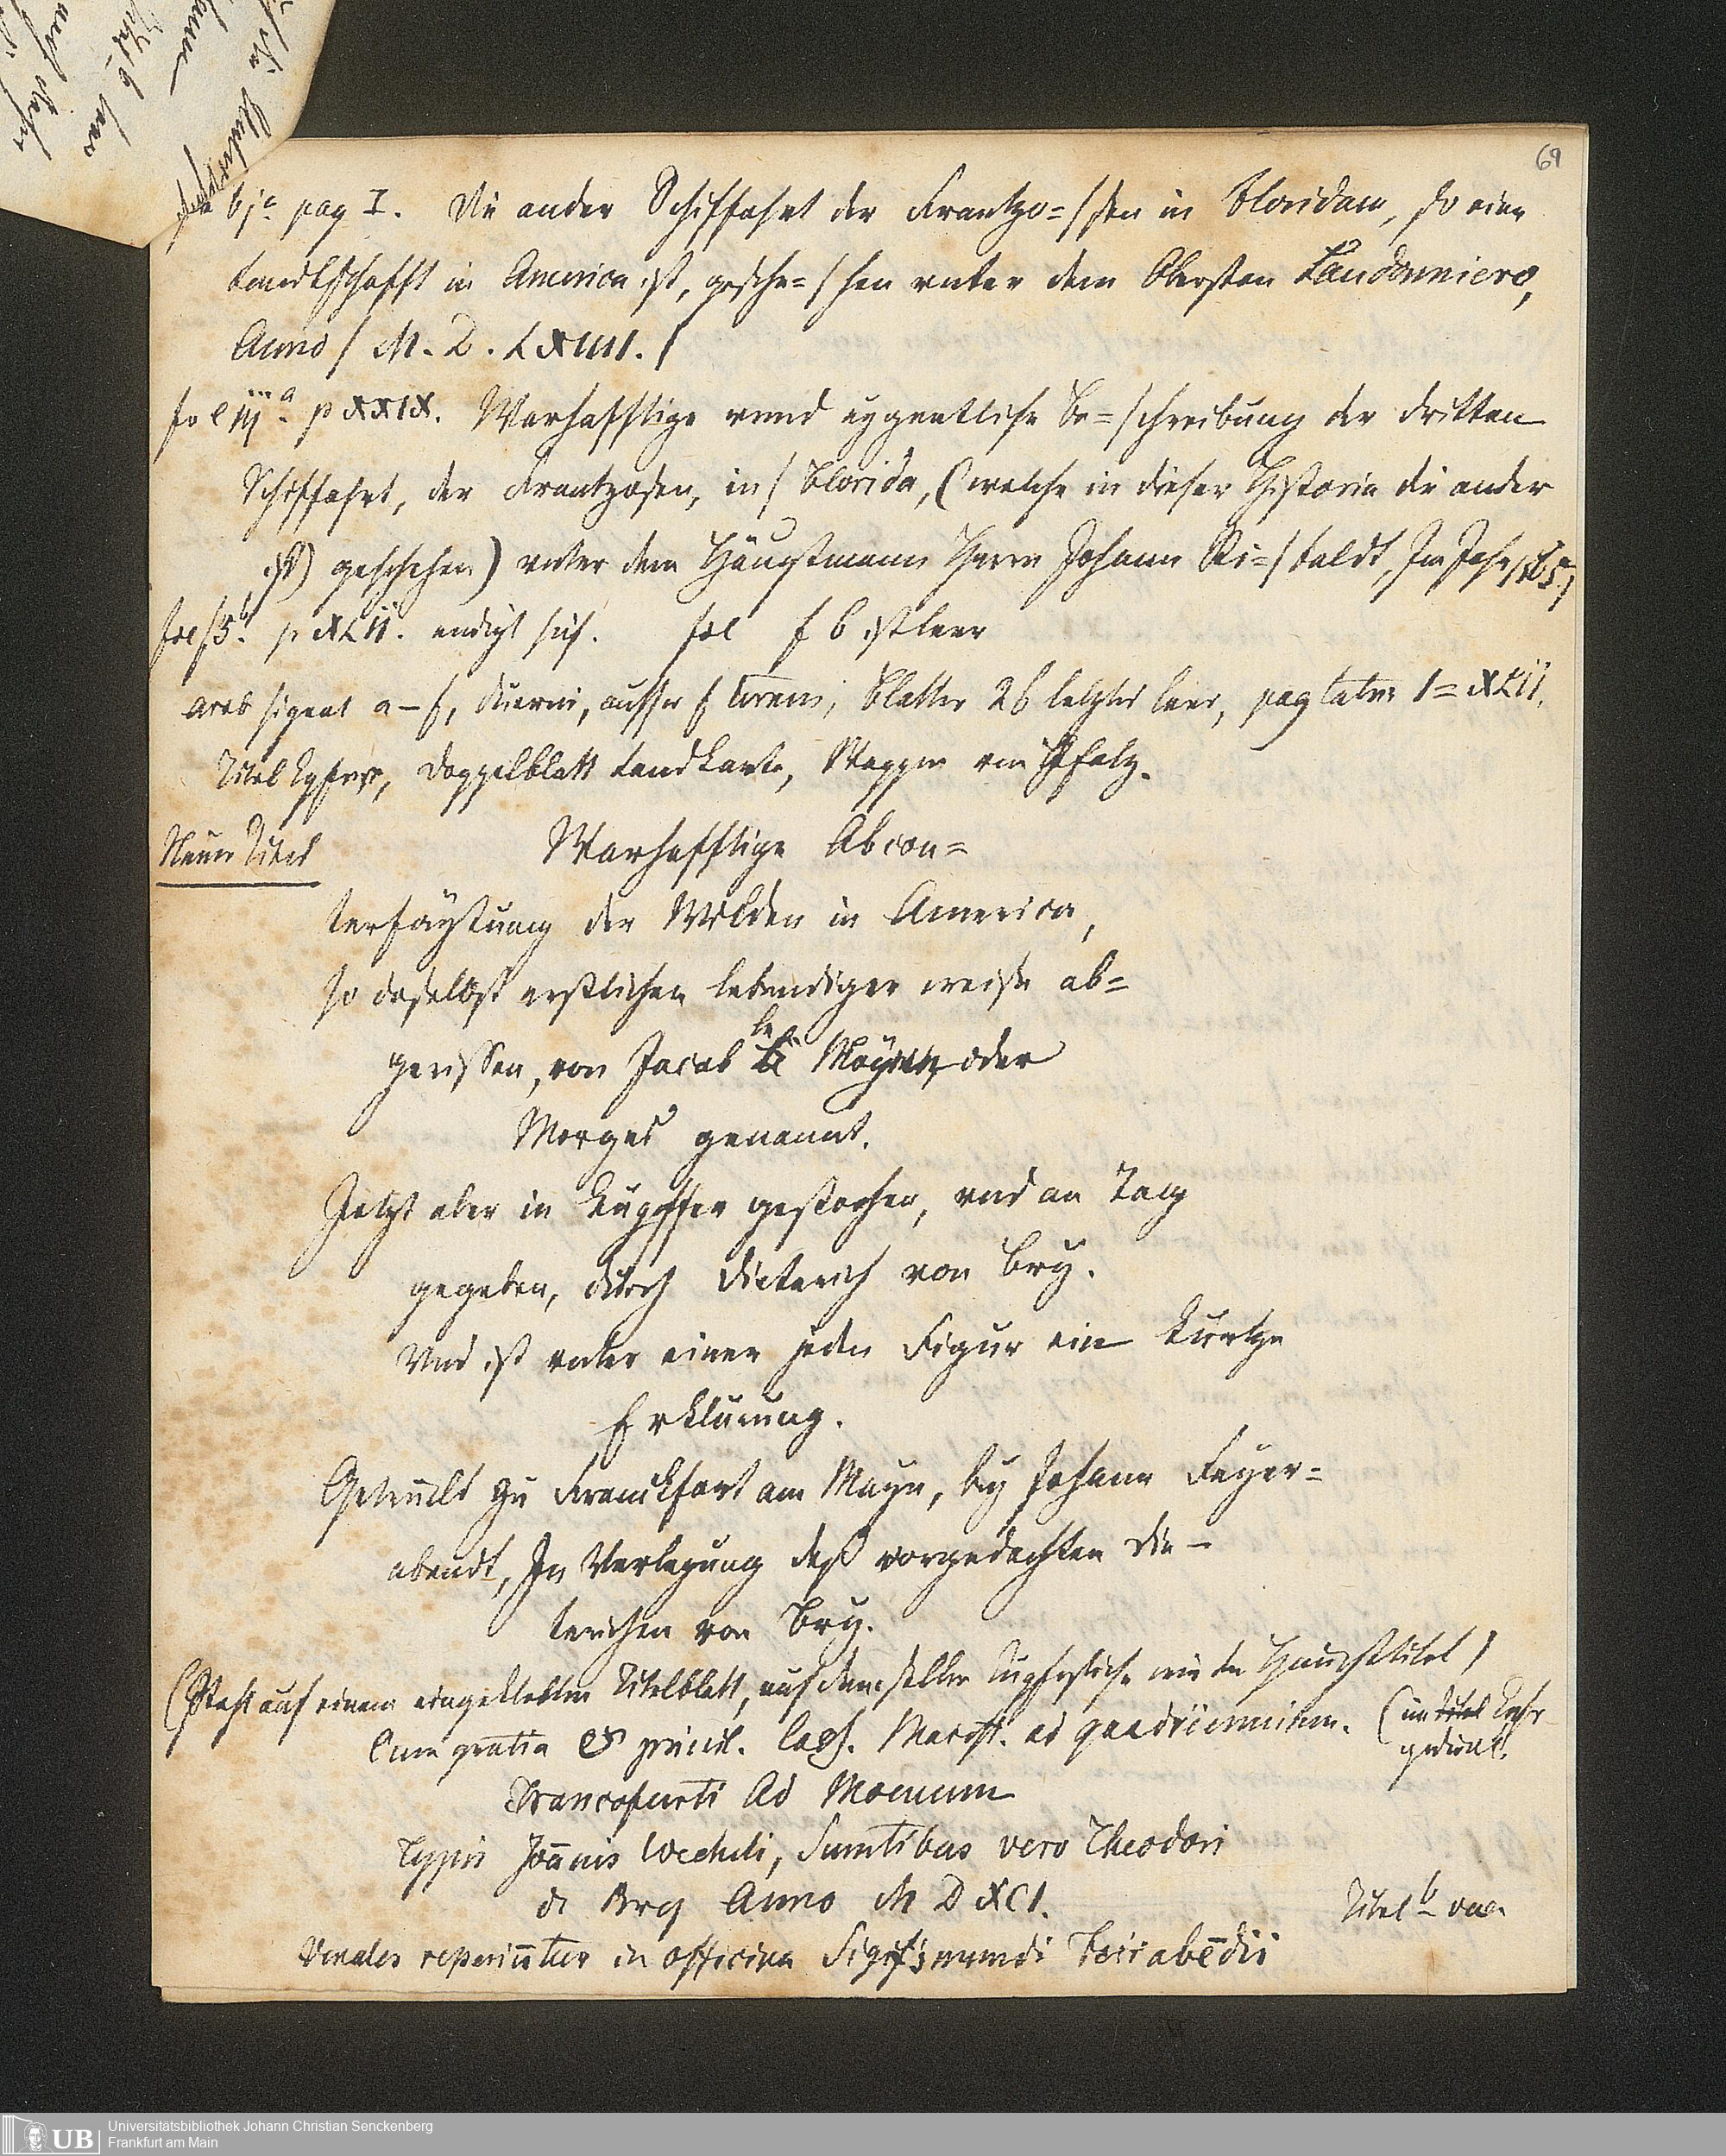 69
bjᵃ pag I. Die ander Schiffahrt der Frantzo=/sen in Floridam, so eine
Landtschafft in America ist, gesche=/hen vnter dem Obersten Laudonniero,
Anno / M. D. LXIIII. /
fo e iijᵃ. p XXIX. Warhafftige vnnd eygentliche be=/schreibung der dritten
Schiffahrt, der Frantzosen, in / Florida, (welche in dieser Historia die ander
ist) geschehen) vnter dem Häuptmann Herrn Johann Ri=/baldt, Im Jahr 1565 /
fol f5ᵇ. p XLII. endigt sich. fol f 6 ist leer
arab signat a–f, , ausser f Terni, Blätter 26 letztes leer, pag latn: I=XLII.
Titel Kpfrst, Doppelblatt Landkarte, Wappen von Pfalz.
Neuer Titel
Warhafftige Abcon=
terfaytung der Wilden in America,
so daselbst erstlichen lebendiger weise ab=
gerissen, von Jacob le Moyne oder
Morges genannt.
Jetzt aber in Kupffer gestochen, vnd an Tag
gegeben, durch Dieterich von Bry.
Vnd ist vnter einer jeden Figur ein kurtze
Erklärung.
Getruckt zu Franckfort am Mayn, bey Johann Feyer=
abendt, In Verlegung deß vorgedachten Die–
terichen von Bry.
(Steht auf einem eingeklebten Titelblatt, auf demselben Kupferstiche wie der Haupttitel)
Cum gratia & privil. Caes. Maiest. ad quadriennium.
Francofurti Ad Moenum
Typis Joān̄is Wecheli, Sumtibus vero Theodori
de Bry Anno M D XCI.
Titel b vac.
Venales reperiūtur in officina Sigismundi Feirabēdii
UB
Universitätsbibliothek Johann Christian Senckenberg
Frankfurt am Main